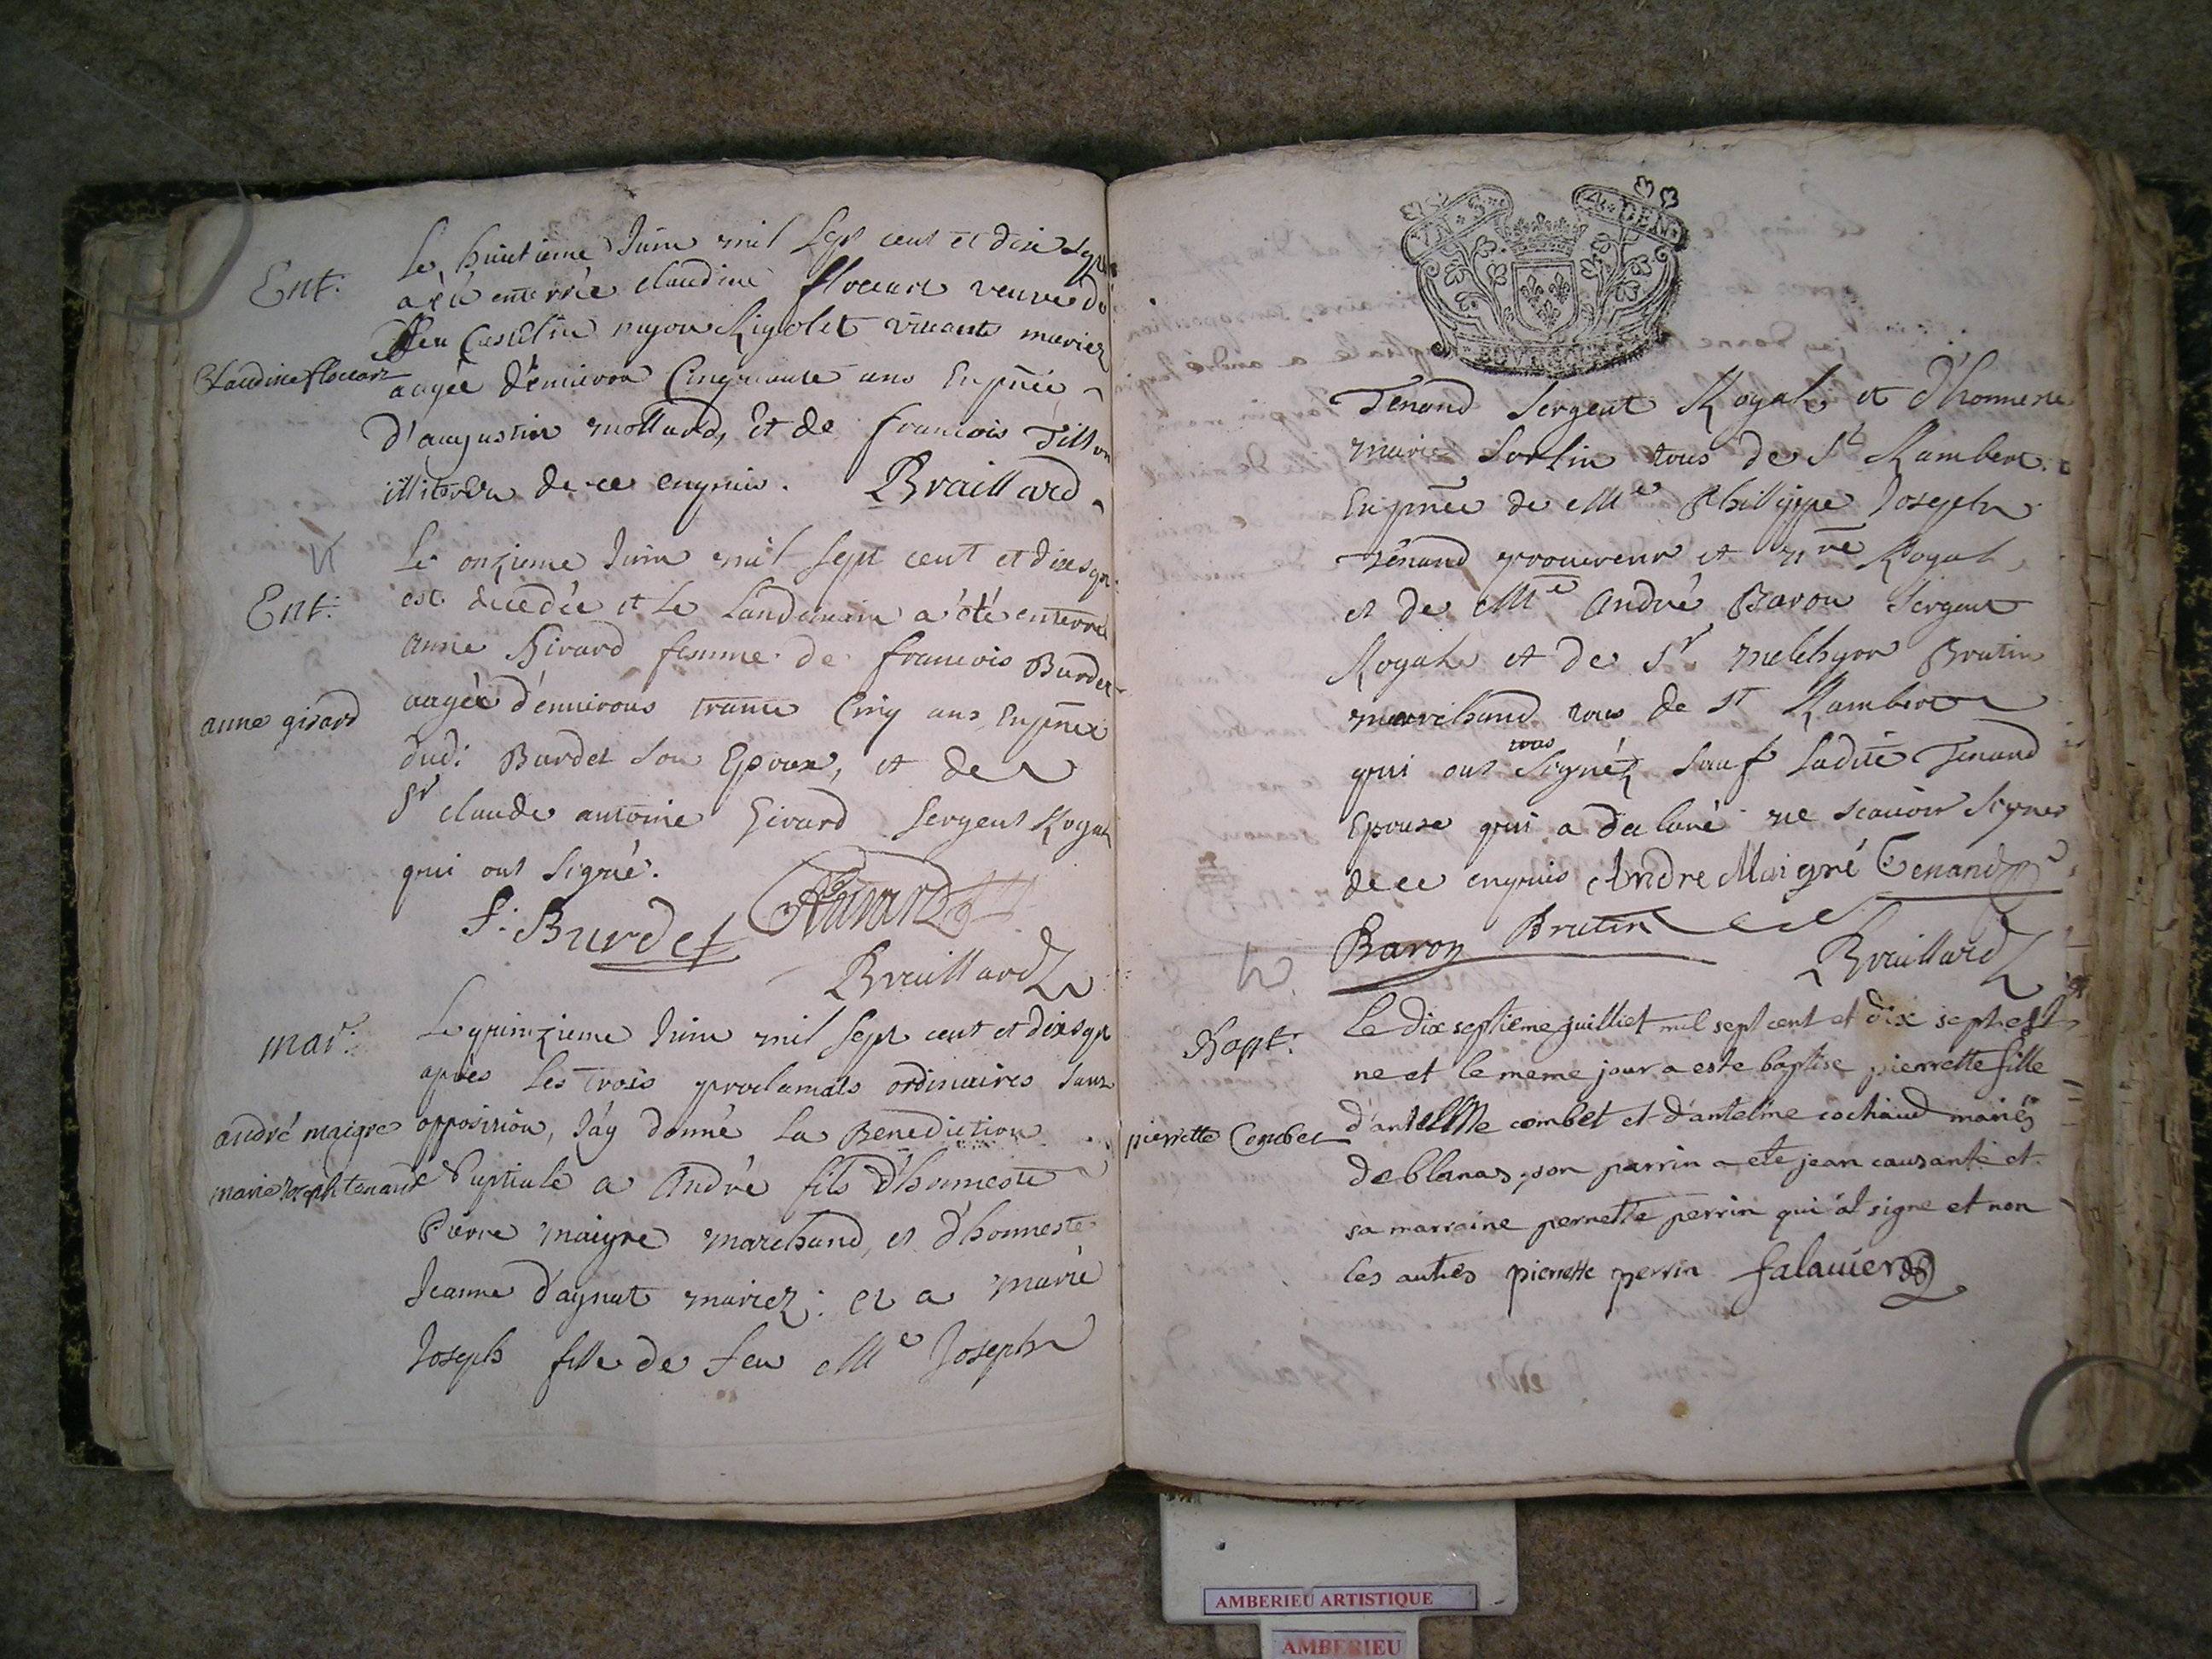 Ent.
Le huictieme Juin mil sept cent et dix sept
a été enterrée claudine floccart veuve de
feu Custelin myon Rigolet vivants mariez
Claudine floccart
aagée d'environ Cinquante ans En pñce
d'augustin mollard, Et de francois Tillon
illiterez de ce enquis. Braillard
Le onzieme Juin mil sept cent et dix sept
Ent.
est decedée et Le Landemain a été enterrée
anne Girard femme de francois Burdet
anne girard
aagée d'environs trante Cinq ans En pñce
dud: Burdet son Epoux, et de
Sr claude antoine Girard Sergent Royal
qui ont signé.
f. Burdet Girard
Braillard
mar.
Le quinzieme Juin mil sept cent et dix sept
après Les trois proclamats ordinaires sans
andré maigre
opposition, J'ay donné La Benediction
marie Joseph tenand
Nuptiale a André fils d'honneste
Pierre maigre marchand, et d'honneste
Jeanne d'agnat mariez: et a marie
Joseph fille de feu Me Joseph
VN S. 4. DEN
Tenand Sergent Royal et d'honneste
marie Sorlin tous de St Rambert.
En pñce de Me Phillippe Joseph
Tenand procureur et nre Royal,
et de Me André Baron Sergent
Royal et de Sr melchyor Brutin
marchand tous de St Rambert
qui ont tous signéz sauf Ladite Tenand
Epouse qui a déclaré ne scauoir signer
de ce enquis Andre Maigré Tenand
Baron Brutin
Braillard
Bapt.
Le dix septieme juilliet mil sept cent et dix sept est
ne et le meme jour a este baptise pierrette fille
pierrette Combet
d'antelme combet et d'antelme cochaud mariés
de blanas, son parrin a ete jean causante et
sa marraine pernette perrin qui at signe et non
les autres pierrette perrin falavier
AMBERIEU ARTISTIQUE
AMBERIEU